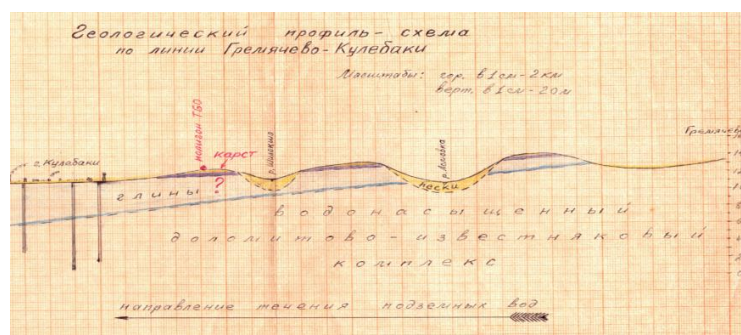 Геологический профиль-схема
по линии Гремячево-Кулебаки
Масштабы: гор. в 1см-2км
верт. в 1см-20м
полигон ТБО
карст
р. Шилокша
р. Ломовка
Гремячево
г. Кулебаки
глины
?
пески
водонасыщенный
доломитово-известняковый
комплекс
направление течения подземных вод